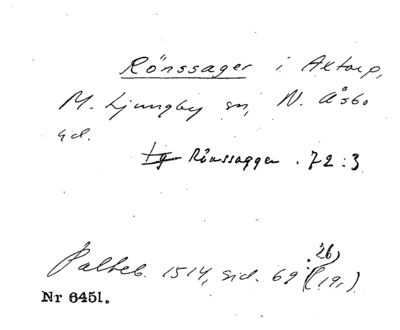 Rönssager i Axtorp,
M. Ljungby sn, N. Åsbo
hd.
Rönssaggen. 72:3
26)
Palteb. 1514, sid. 69 (19.)
Nr 6451.